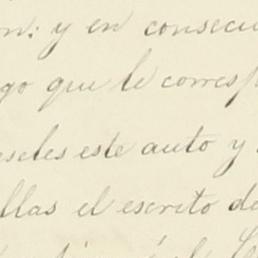 n: y en consecu
go que le corresp
seles este auto y
llas el escrito de